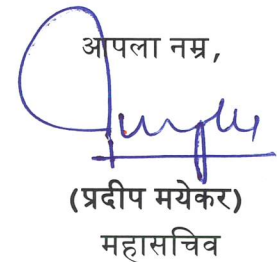 आपला नम्र,
(प्रदीप मयेकर)
महासचिव